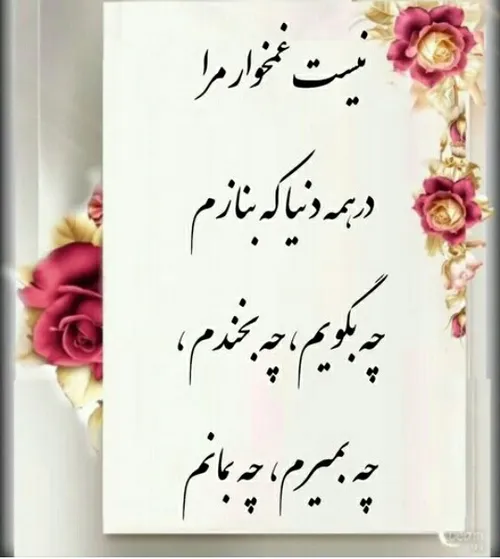 نیست غمخوار مرا
در همه دنیا که بنازم
چه بگویم، چه بخندم،
چه بمیرم، چه بمانم